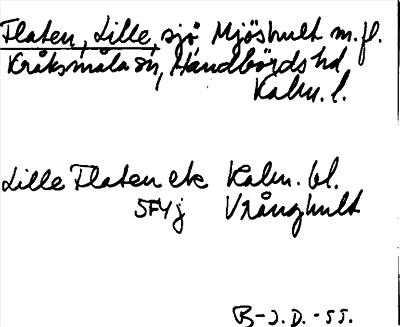 Flaten, Lille, sjö Mjöshult m.fl.
Kråksmåla sn, Handbörds hd
Kalm. l.
Lille Flaten ek Kalm. bl.
5F4j Vrånghult
B-J.D.-55.